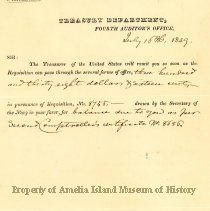 TREASURY DEPARTMENT,
FOURTH AUDITOR'S OFFICE,
July 16th, 1829.
SIR:
The Treasurer of the United States will remit you so soon as the
Requisition can pass through the several forms of three hundred
and thirty eight dollars & sixteen cents
in pursuance of Requisition, No. drawn by the Secretary of
the Navy in your favor, for balance due to you as per
Second Comptroller's certificate No.
Property of Amelia Island Museum of History